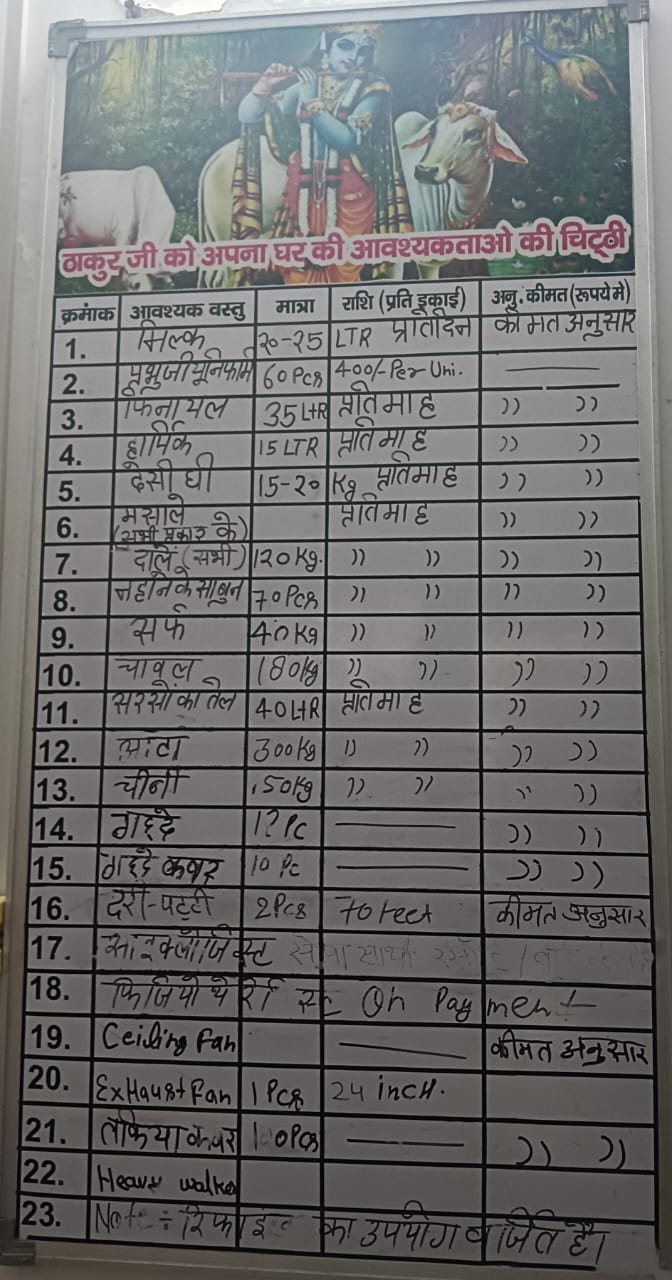 ठाकुर जी को अपना घर की आवश्यकताओ की चिट्ठी
क्रमांक आवश्यक वस्तु मात्रा राशि (प्रति इकाई) अनु. कीमत (रूपये मे)
1. मिल्क २०-२५ LTR प्रतिदिन कीमत अनुसार
2. प्रभुजी यूनिफार्म 60 Pcs 400/- Per Uni.
3. फिनायल 35 LtR प्रतिमाह )) ))
4. हार्पिक 15 LTR प्रतिमाह )) ))
5. देसी घी 15-20 Kg प्रतिमाह )) ))
6. मसाले (सभी प्रकार के) प्रतिमाह )) ))
7. दालें (सभी) 120 Kg. )) )) )) ))
8. नहाने के साबुन 70 Pcs )) )) )) ))
9. सर्फ 40 Kg )) )) )) ))
10. चावल 180 kg )) )) )) ))
11. सरसो का तेल 40 LtR प्रतिमाह )) ))
12. आटा 300 Kg )) )) )) ))
13. चीनी 50 Kg )) )) )) ))
14. गद्दे Pc )) ))
15. गद्दे कवर 10 Pc )) ))
16. दरी-पट्टी 2 Pcs 70 Feet कीमत अनुसार
17.
18. फिजियोथेरेपिस्ट On Payment
19. Ceiling Fan कीमत अनुसार
20. ExHaust Fan 1 Pcs 24 inch.
21. तकिया कवर Pcs )) ))
22. Heavy walker
23. Note रिफाइंड का उपयोग वर्जित है।